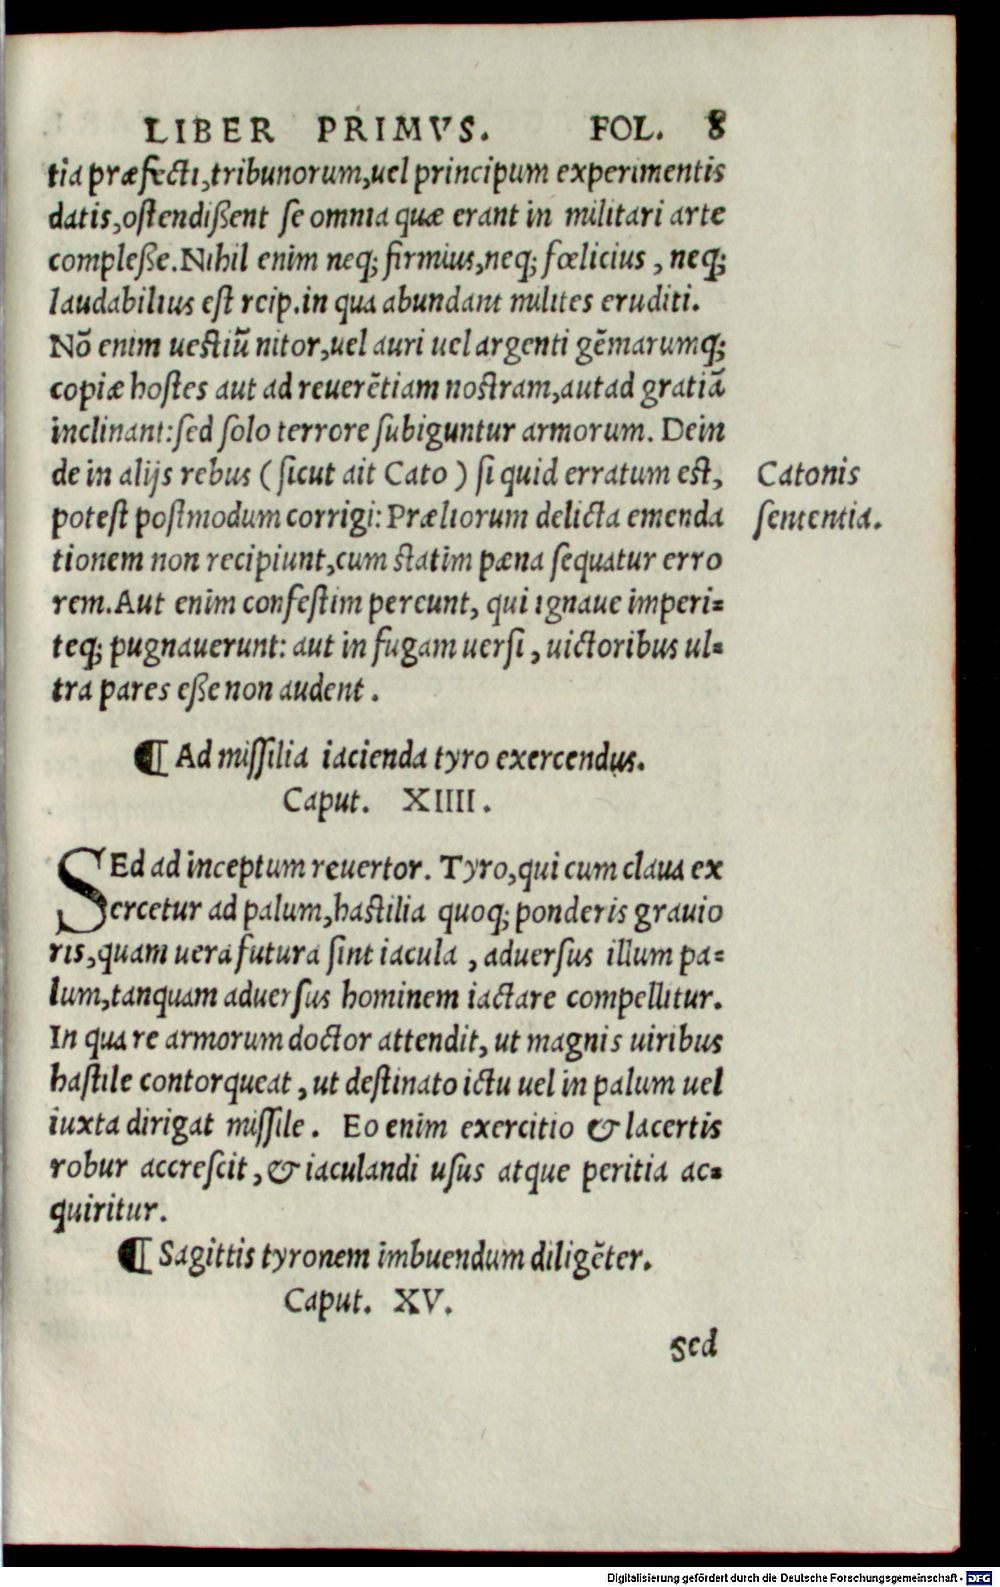 LIBER PRIMVS. FOL. 8
tia præfecti, tribunorum, uel principum experimentis
datis, ostendißent se omnia quæ erant in militari arte
compleße. Nihil enim neq; firmius, neq; fœlicius, neq;
laudabilius est reip. in qua abundant milites eruditi.
Nõ enim uestiũ nitor, uel auri uel argenti gẽmarumq;
copiæ hostes aut ad reuerẽtiam nostram, aut ad gratiã
inclinant: sed solo terrore subiguntur armorum. Dein
de in alijs rebus (sicut ait Cato) si quid erratum est,
potest postmodum corrigi: Præliorum delicta emenda
tionem non recipiunt, cum statim pæna sequatur erro
rem. Aut enim confestim pereunt, qui ignaue imperi=
teq; pugnauerunt: aut in fugam uersi, uictoribus ul=
tra pares eße non audent.
Catonis
sententia.
¶ Ad missilia iacienda tyro exercendus.
Caput. XIIII.
SEd ad inceptum reuertor. Tyro, qui cum claua ex
ercetur ad palum, hastilia quoq; ponderis grauio
ris, quam uera futura sint iacula, aduersus illum pa=
lum, tanquam aduersus hominem iactare compellitur.
In qua re armorum doctor attendit, ut magnis uiribus
hastile contorqueat, ut destinato ictu uel in palum uel
iuxta dirigat missile. Eo enim exercitio & lacertis
robur accrescit, & iaculandi usus atque peritia ac=
quiritur.
¶ Sagittis tyronem imbuendum diligẽter.
Caput. XV.
Sed
Digitalisierung gefördert durch die Deutsche Forschungsgemeinschaft - DFG